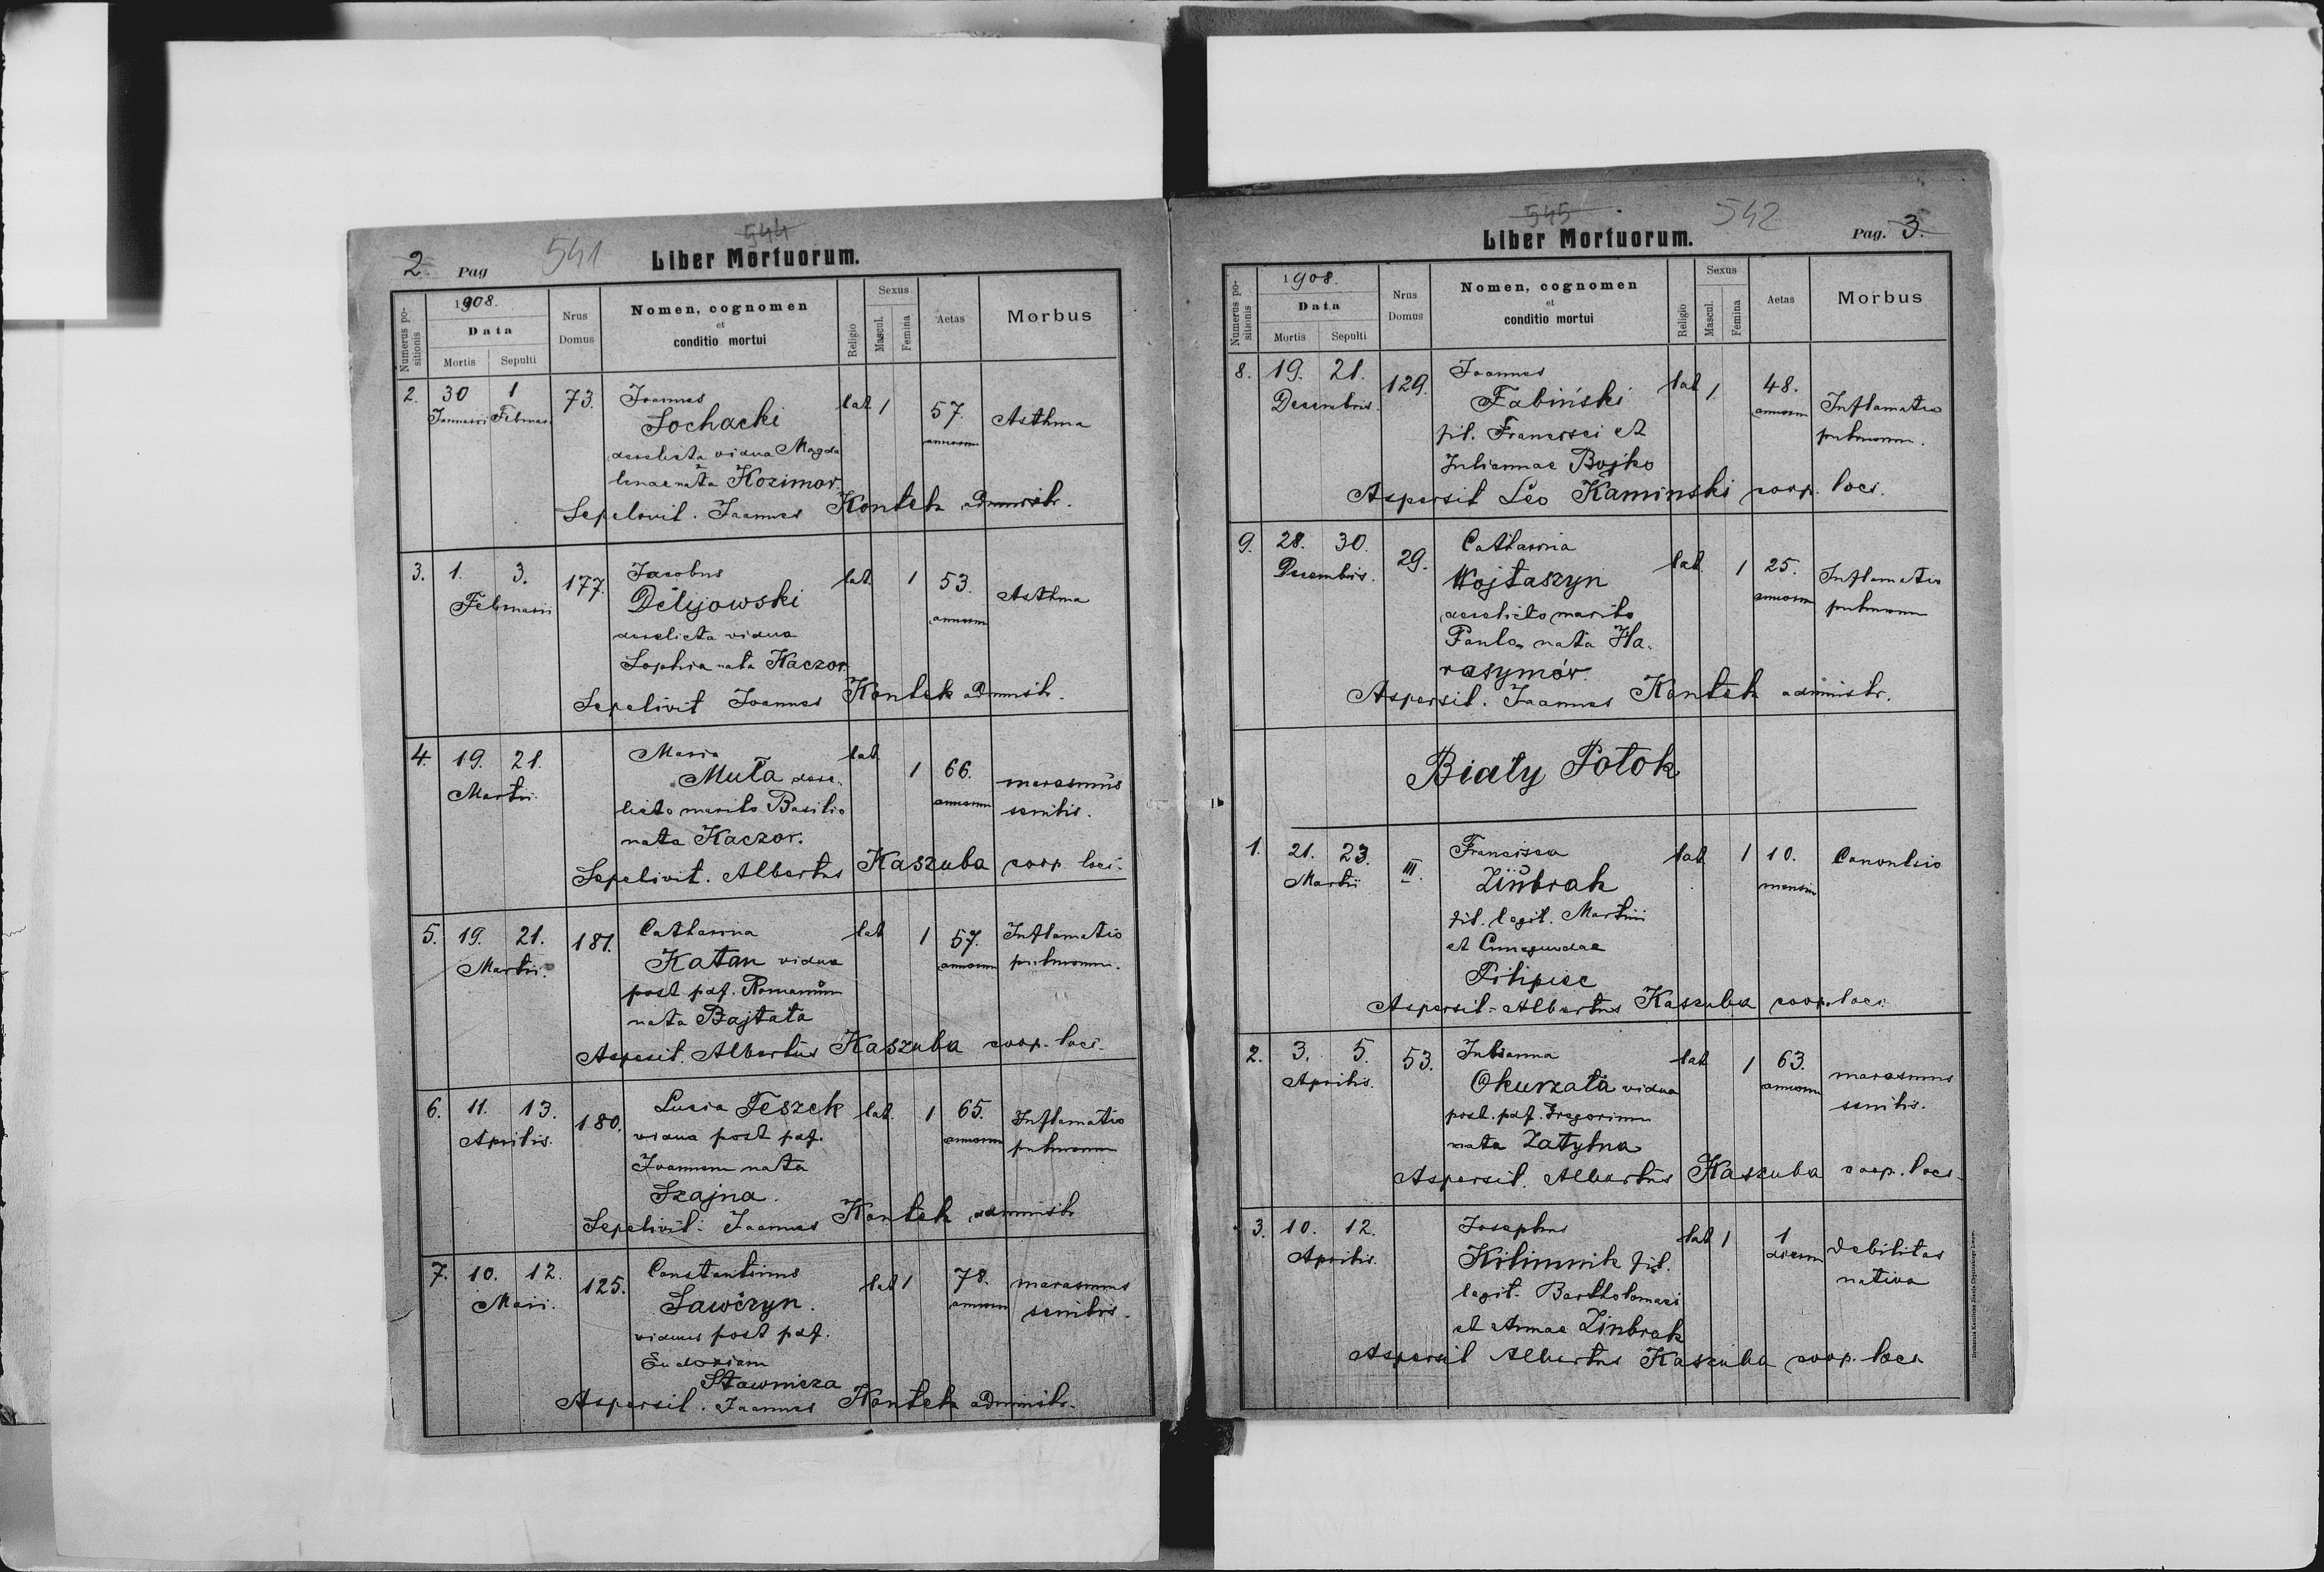 2. Pag 541 544
Liber Mortuorum.
Numerus positionis
1908.
Data
Mortis Sepulti
Nrus Domus
Nomen, cognomen
et
conditio mortui
Religio
Sexus
Mascul. Femina
Aetas
Morbus
2. 30 1 73. Joannes lat 1 57. Asthma
Januarii Februar. Sochacki annorum
derelicta vidua Magda
lenae nata Kozimor.
Sepelivit. Joannes Kontek administr.
3. 1. 3. 177. Jacobus lat. 1 53. Asthma
Februarii Delijowski annorum
derelicta vidua
Sophia nata Kaczor.
Sepelivit Joannes Kontek administr.
4. 19. 21. Maria lat. 1 66. marasmus
Martii. Muła dere. annorum senilis.
licto marito Basilio
nata Kaczor.
Sepelivit. Albertus Kaszuba coop. loci.
5. 19. 21. 181. Catharina lat 1 57. Inflamatio
Martii. Katan vidua annorum pulmonum.
post pdf. Romanum
nata Bajtała
Aspersit. Albertus Kaszuba coop. loci.
6. 11. 13. 180. Lucia Teszek lat. 1 65. Inflamatio
Aprilis. vidua post pdf. annorum pulmonum
Joannem nata
Szajna.
Sepelivit: Joannes Kontek administr
7. 10. 12. 125. Constantinus lat 1 78. marasmus
Maii. Sawczyn. annorum senilis.
viduus post pdf.
Eudoxiam
Stawnicza
Aspersit. Joannes Kontek administr.
545 542 Pag. 3.
Liber Mortuorum.
Numerus positionis
1908.
Data
Mortis Sepulti
Nrus Domus
Nomen, cognomen
et
conditio mortui
Religio
Sexus
Mascul. Femina
Aetas
Morbus
8. 19. 21. 129. Joannes lat 1 48. Inflamatio
Decembris. Fabiński annorum pulmonum.
fil. Francisci et
Juliannae Bojko
Aspersit Leo Kaminski coop. loci.
9. 28. 30. 29. Catharina lat 1 25. Inflamatio
Decembris. Wojtaszyn annorum pulmonum
derelicto marito
Paulo nata Ha.
rasymów.
Aspersit. Joannes Kontek administr.
Biały Potok
1. 21. 23. III. Francisca lat 1 10. Convulsio
Martii Zinbrak mensium
fil. legit. Martini
et Cunegundae
Pilipiec
Aspersit - Albertus Kaszuba coop. loci.
2. 3. 5. 53. Julianna lat 1 63. marasmus
Aprilis. Okurzała vidua annorum senilis.
post. pdf. Gregorium
nata Zatylna
Aspersit. Albertus Kaszuba coop. loci.
3. 10. 12. Josephus lat 1 1 debilitas
Aprilis. Kilimnik fil. diem nativa
legit. Bartholomaei
et Annae Zinbrak
Aspersit Albertus Kaszuba coop. loci.